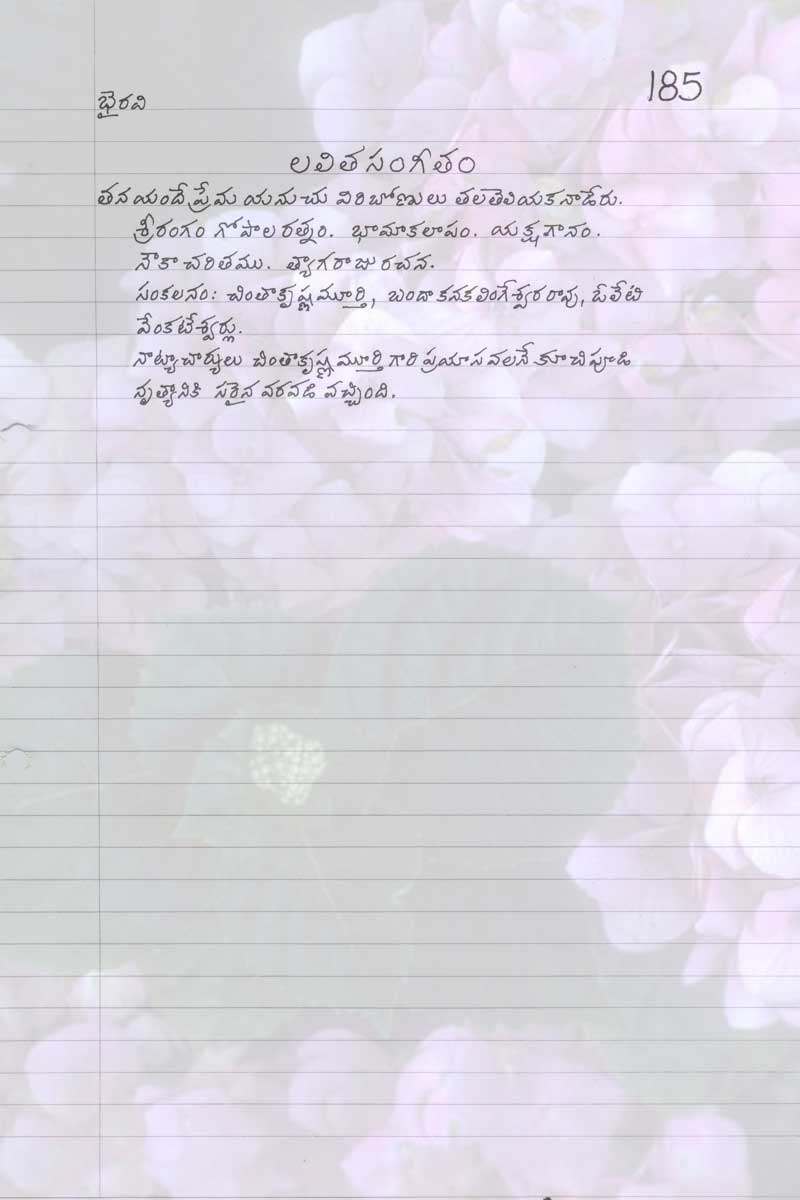 భైరవి
185
లలితసంగీతం
తనయందే ప్రేమ యనుచు విరిబోణులు తలతెలియకనాడేరు.
శ్రీరంగం గోపాల రత్నం. భామాకలాపం. యక్షగానం.
నౌకా చరితము. త్యాగరాజు రచన.
సంకలనం: చింతాకృష్ణమూర్తి, బందా కనకలింగేశ్వర రావు, ఓలేటి
వేంకటేశ్వర్లు.
నాట్యాచార్యులు చింతాకృష్ణమూర్తి గారి ప్రయాస వలనే కూచిపూడి
నృత్యానికి సరైన వరవడి వచ్చింది.